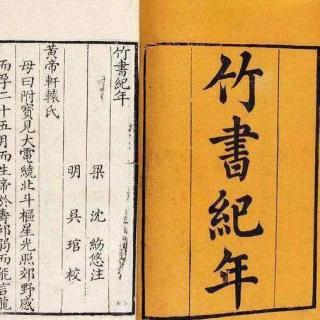 竹書紀年
竹書紀年
梁 沈 約 注
明 吳 琯 校
黃帝軒轅氏
母曰附寶見大電繞北斗樞星光照郊野感
而孕二十五月而生帝於壽邱弱而能言龍